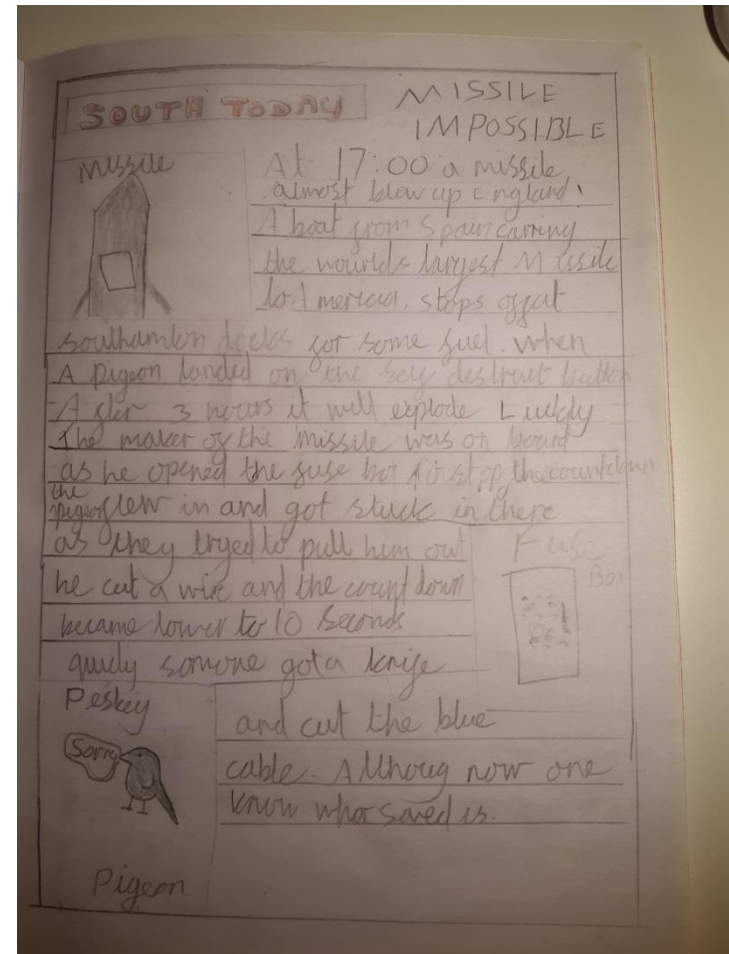 SOUTH TODAY
MISSILE
IMPOSSIBLE
Missile
At 17:00 a missile
almost blow up England.
A boat from Spain carring
the wourlds largest Missile
to Americaa. stops off at
Southamton docks for some fuel. when
A pigeon landed on the self destruct button
After 3 hours it will explode Luckly
The maker of the missile was on board
as he opened the fuse box to stop the countdown
the pigeon flew in and got stuck in there
as they tryed to pull him out
he cut a wire and the count down
became lower to 10 seconds
quicly somone got a knife
Fuse
Box
Peskey
Sorry
Pigeon
and cut the blue
cable. Althoug now one
know who saved us.